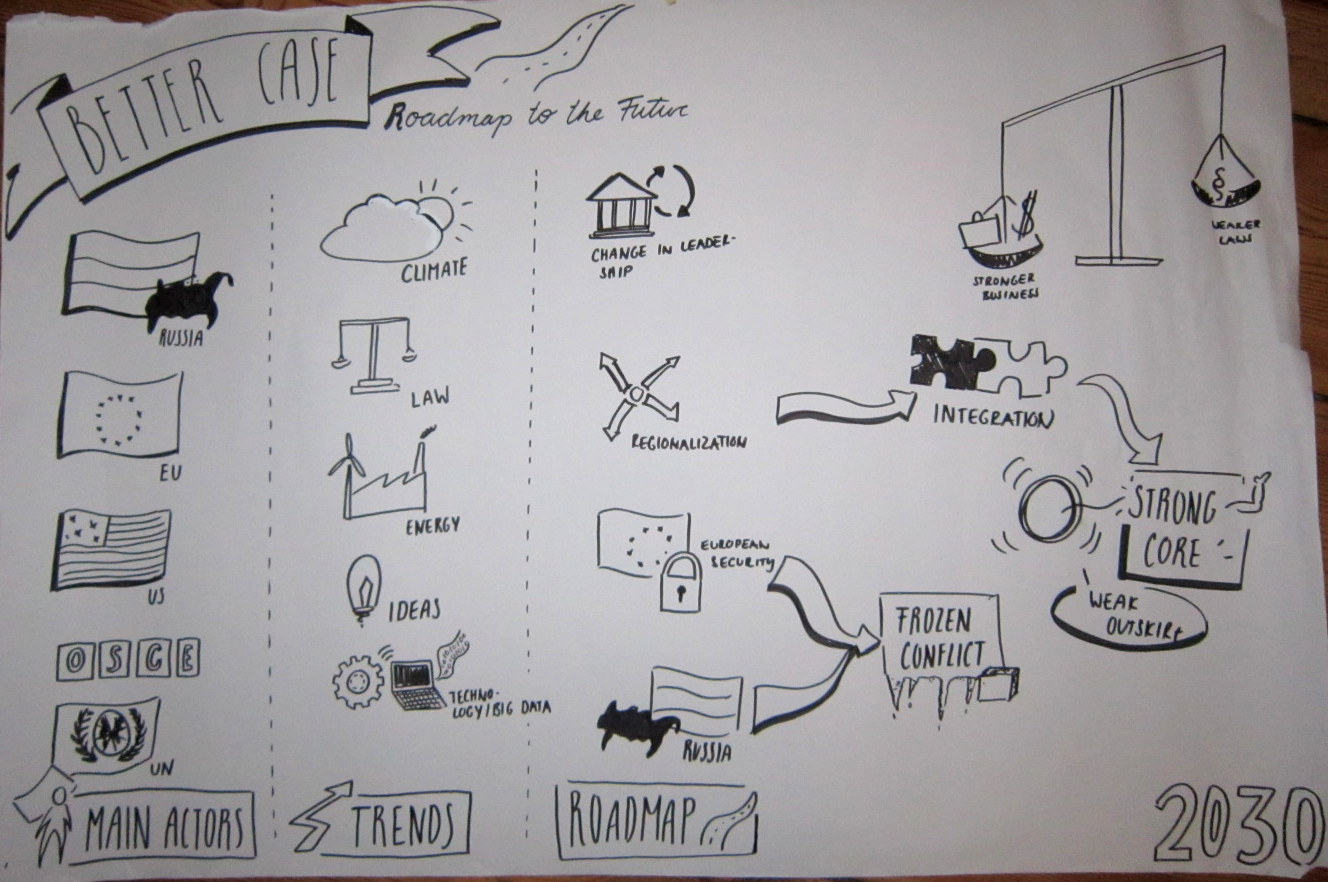 BETTER CASE
Roadmap to the Future
RUSSIA
EU
US
OSCE
UN
MAIN ACTORS
CLIMATE
LAW
ENERGY
IDEAS
TECHNO-
LOGY/BIG DATA
TRENDS
CHANGE IN LEADER-
SHIP
REGIONALIZATION
EUROPEAN
SECURITY
RUSSIA
ROADMAP
$
STRONGER
BUSINESS
§
WEAKER
LAWS
INTEGRATION
STRONG
CORE
WEAK
OUTSKIRT
FROZEN
CONFLICT
2030